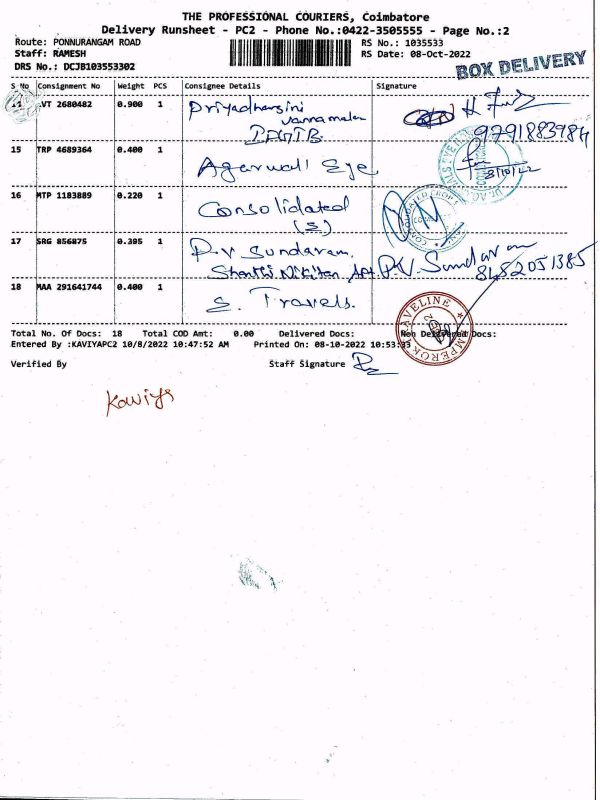 THE PROFESSIONAL COURIERS, Coimbatore
Delivery Runsheet - PC2 - Phone No.:0422-3505555 - Page No.:2
Route: PONNURANGAM ROAD RS No.: 1035533
Staff: RAMESH RS Date: 08-Oct-2022
DRS No.: DCJB103553302
BOX DELIVERY
S No Consignment No Weight PCS Consignee Details Signature
14 2680482 0.900 1 Priyadharsini
IAGTB 9791883984
15 TRP 4689364 0.400 1 Agarwall Eye 8/10/22
16 MTP 1183889 0.220 1 Consolidated
(S)
17 SRG 856875 0.395 1 P.V Sundaram. P.V. Sundaram
Shanthi Nikitan Apt. 8152051385
18 MAA 291641744 0.400 1 S. Travels.
Total No. Of Docs: 18 Total COD Amt: 0.00 Delivered Docs: Non Delivered Docs:
Entered By :KAVIYAPC2 10/8/2022 10:47:52 AM Printed On: 08-10-2022 10:53:33
Verified By Staff Signature
Kaviya